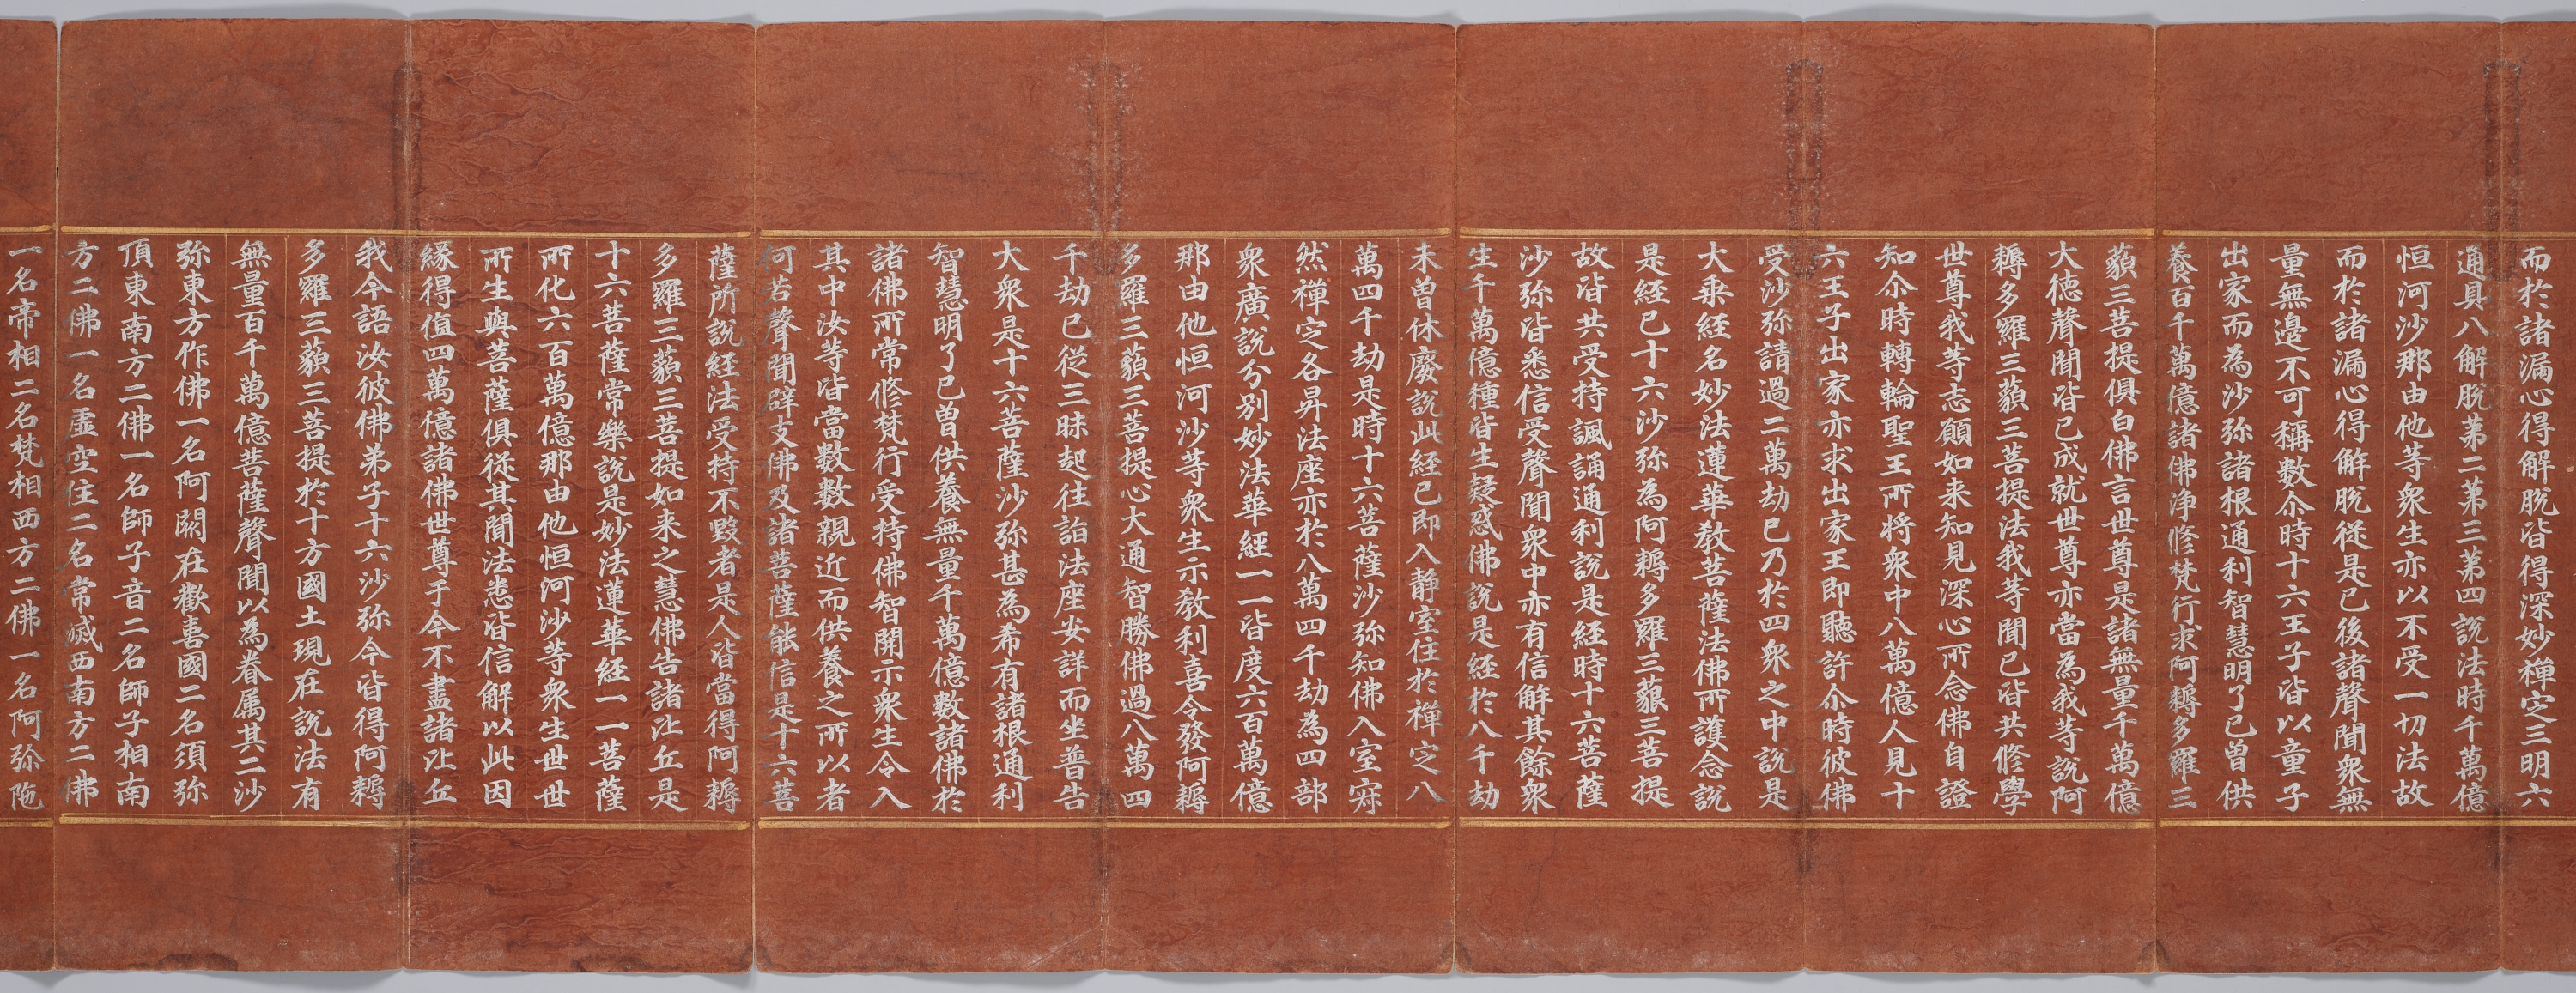 而於諸漏心得解脫皆得深妙禪定三明六
通具八解脫第二第三第四說法時千萬億
恒河沙那由他等衆生亦以不受一切法故
而於諸漏心得解脫從是已後諸聲聞衆無
量無邊不可稱數尒時十六王子皆以童子
出家而為沙弥諸根通利智慧明了已曾供
養百千萬億諸佛淨修梵行求阿耨多羅三
藐三菩提俱白佛言世尊是諸無量千萬億
大德聲聞皆已成就世尊亦當為我等說阿
耨多羅三藐三菩提法我等聞已皆共修學
世尊我等志願如来知見深心所念佛自證
知尒時轉輪聖王所將衆中八萬億人見十
六王子出家亦求出家王即聽許尒時彼佛
受沙弥請過二萬劫已乃於四衆之中說是
大乘経名妙法蓮華教菩薩法佛所護念說
是経已十六沙弥為阿耨多羅三藐三菩提
故皆共受持諷誦通利說是経時十六菩薩
沙弥皆悉信受聲聞衆中亦有信解其餘衆
生千萬億種皆生疑惑佛說是経於八千劫
未曾休廢說此経已即入静室住於禪定八
萬四千劫是時十六菩薩沙弥知佛入室寂
然禪定各昇法座亦於八萬四千劫為四部
衆廣說分別妙法華經一一皆度六百萬億
那由他恒河沙等衆生示教利喜令發阿耨
多羅三藐三菩提心大通智勝佛過八萬四
千劫已從三昧起往詣法座安詳而坐普告
大衆是十六菩薩沙弥甚為希有諸根通利
智慧明了已曾供養無量千萬億數諸佛於
諸佛所常修梵行受持佛智開示衆生令入
其中汝等皆當數數親近而供養之所以者
何若聲聞辟支佛及諸菩薩能信是十六菩
薩所說経法受持不毀者是人皆當得阿耨
多羅三藐三菩提如来之慧佛告諸比丘是
十六菩薩常樂說是妙法蓮華経一一菩薩
所化六百萬億那由他恒河沙等衆生世世
所生與菩薩俱從其聞法悉皆信解以此因
緣得值四萬億諸佛世尊于今不盡諸比丘
我今語汝彼佛弟子十六沙弥今皆得阿耨
多羅三藐三菩提於十方國土現在說法有
無量百千萬億菩薩聲聞以為眷属其二沙
弥東方作佛一名阿閦在歡喜國二名須弥
頂東南方二佛一名師子音二名師子相南
方二佛一名虛空住二名常滅西南方二佛
一名帝相二名梵相西方二佛一名阿弥陁